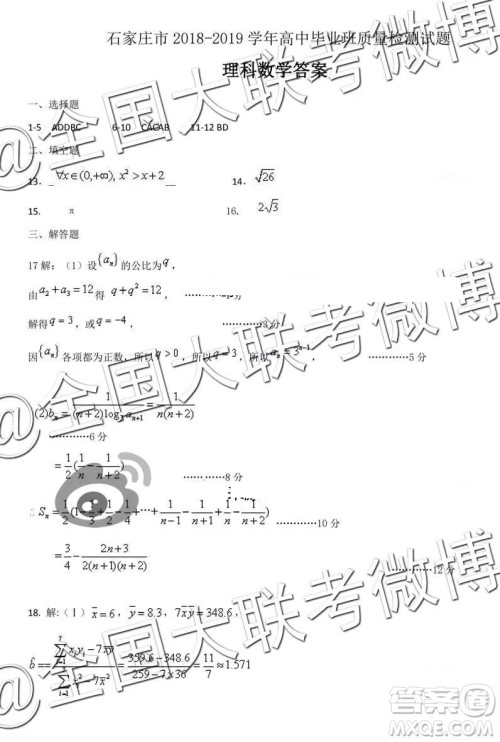 石家庄市 2018-2019 学年高中毕业班质量检测试题
理科数学答案
一、选择题
1-5 ADDBC 6-10 CACAB 11-12 BD
二、填空题
13. ∀x∈(0,+∞), x²>x+2 14. √26
15. π 16. 2√3
三、解答题
17 解：（1）设{aₙ}的公比为 q，
由 a₂+a₃=12 得 q+q²=12， ………………
解得 q=3，或 q=-4， …………3分
因{aₙ}各项都为正数，所以 q>0，所以 q=3，所以 aₙ=3ⁿ⁻¹， …………5分
(2) bₙ = 1/((n+2)log₃aₙ₊₁) = 1/(n(n+2))
…………6分
= 1/2(1/n - 1/(n+2)) …………8分
∴ Sₙ = 1/2(1 - 1/3 + 1/2 - 1/4 + ⋯ + 1/(n-1) - 1/(n+1) + 1/n - 1/(n+2)) …………10分
= 3/4 - (2n+3)/(2(n+1)(n+2)) …………12分
18. 解:(Ⅰ) x̄=6, ȳ=8.3, 7x̄ȳ=348.6,
b̂ = (∑xᵢyᵢ-7x̄ȳ)/(∑xᵢ²-7x̄²) = (359.6-348.6)/(259-7×36) = 11/7 ≈ 1.571
@全国大联考微博
@全国大联考微博
@全国大联考微博
作业卷